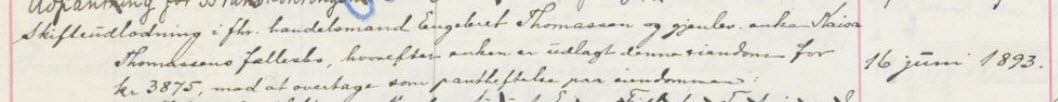 Skifteudlodning i fhv. handelsmand Engebret Thomassen og gjenlev. enke Kaisa
Thomassens fællesbo, hvorefter enken er udlagt denne eiendom for
kr 3875, mod at overtage som pantheftelse paa eiendommen:
16 juni 1893.